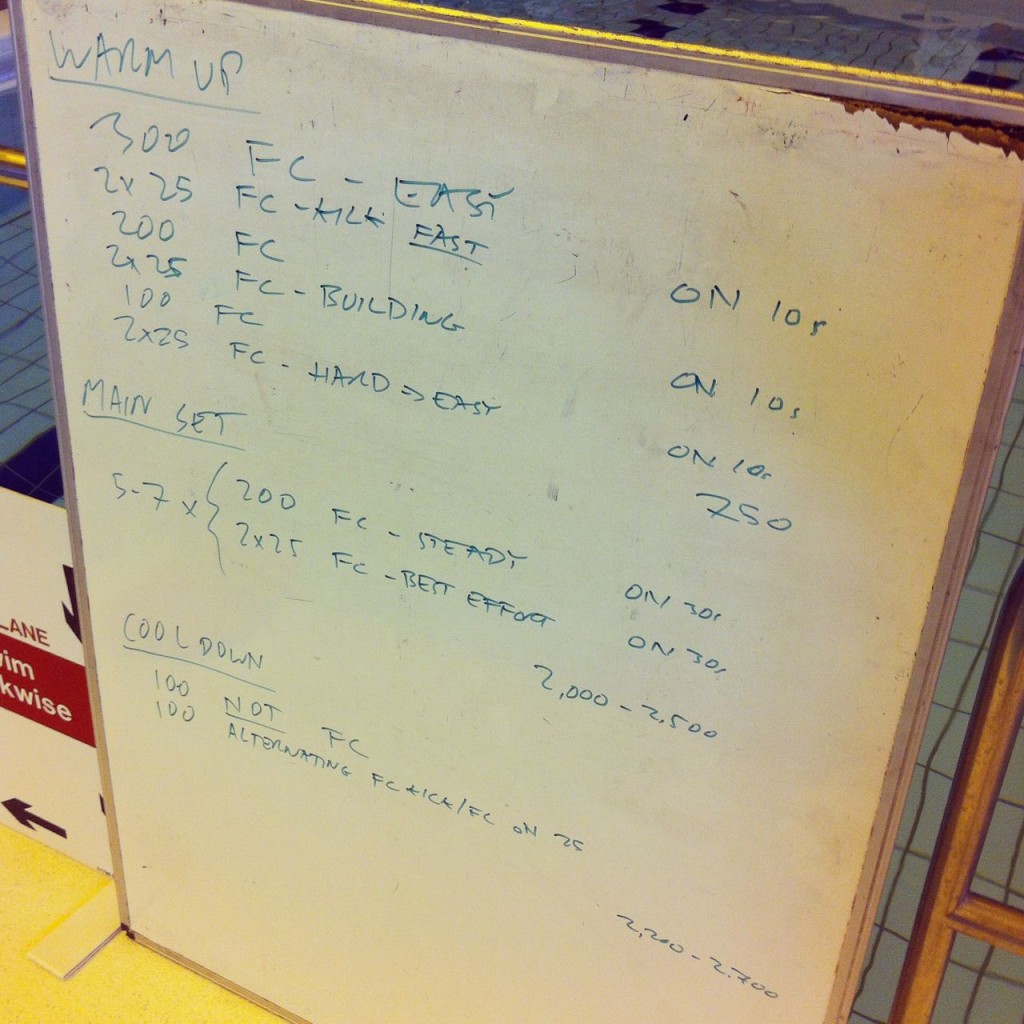 WARM UP
300 FC - EASY
2x25 FC - KICK FAST ON 10s
200 FC
2x25 FC - BUILDING ON 10s
100 FC
2x25 FC - HARD => EASY ON 10s
750
MAIN SET
5-7 x { 200 FC - STEADY ON 30s
2x25 FC - BEST EFFORT ON 30s
2,000 - 2,500
COOL DOWN
100 NOT FC
100 ALTERNATING FC KICK/FC ON 25
2,200 - 2,700
LANE